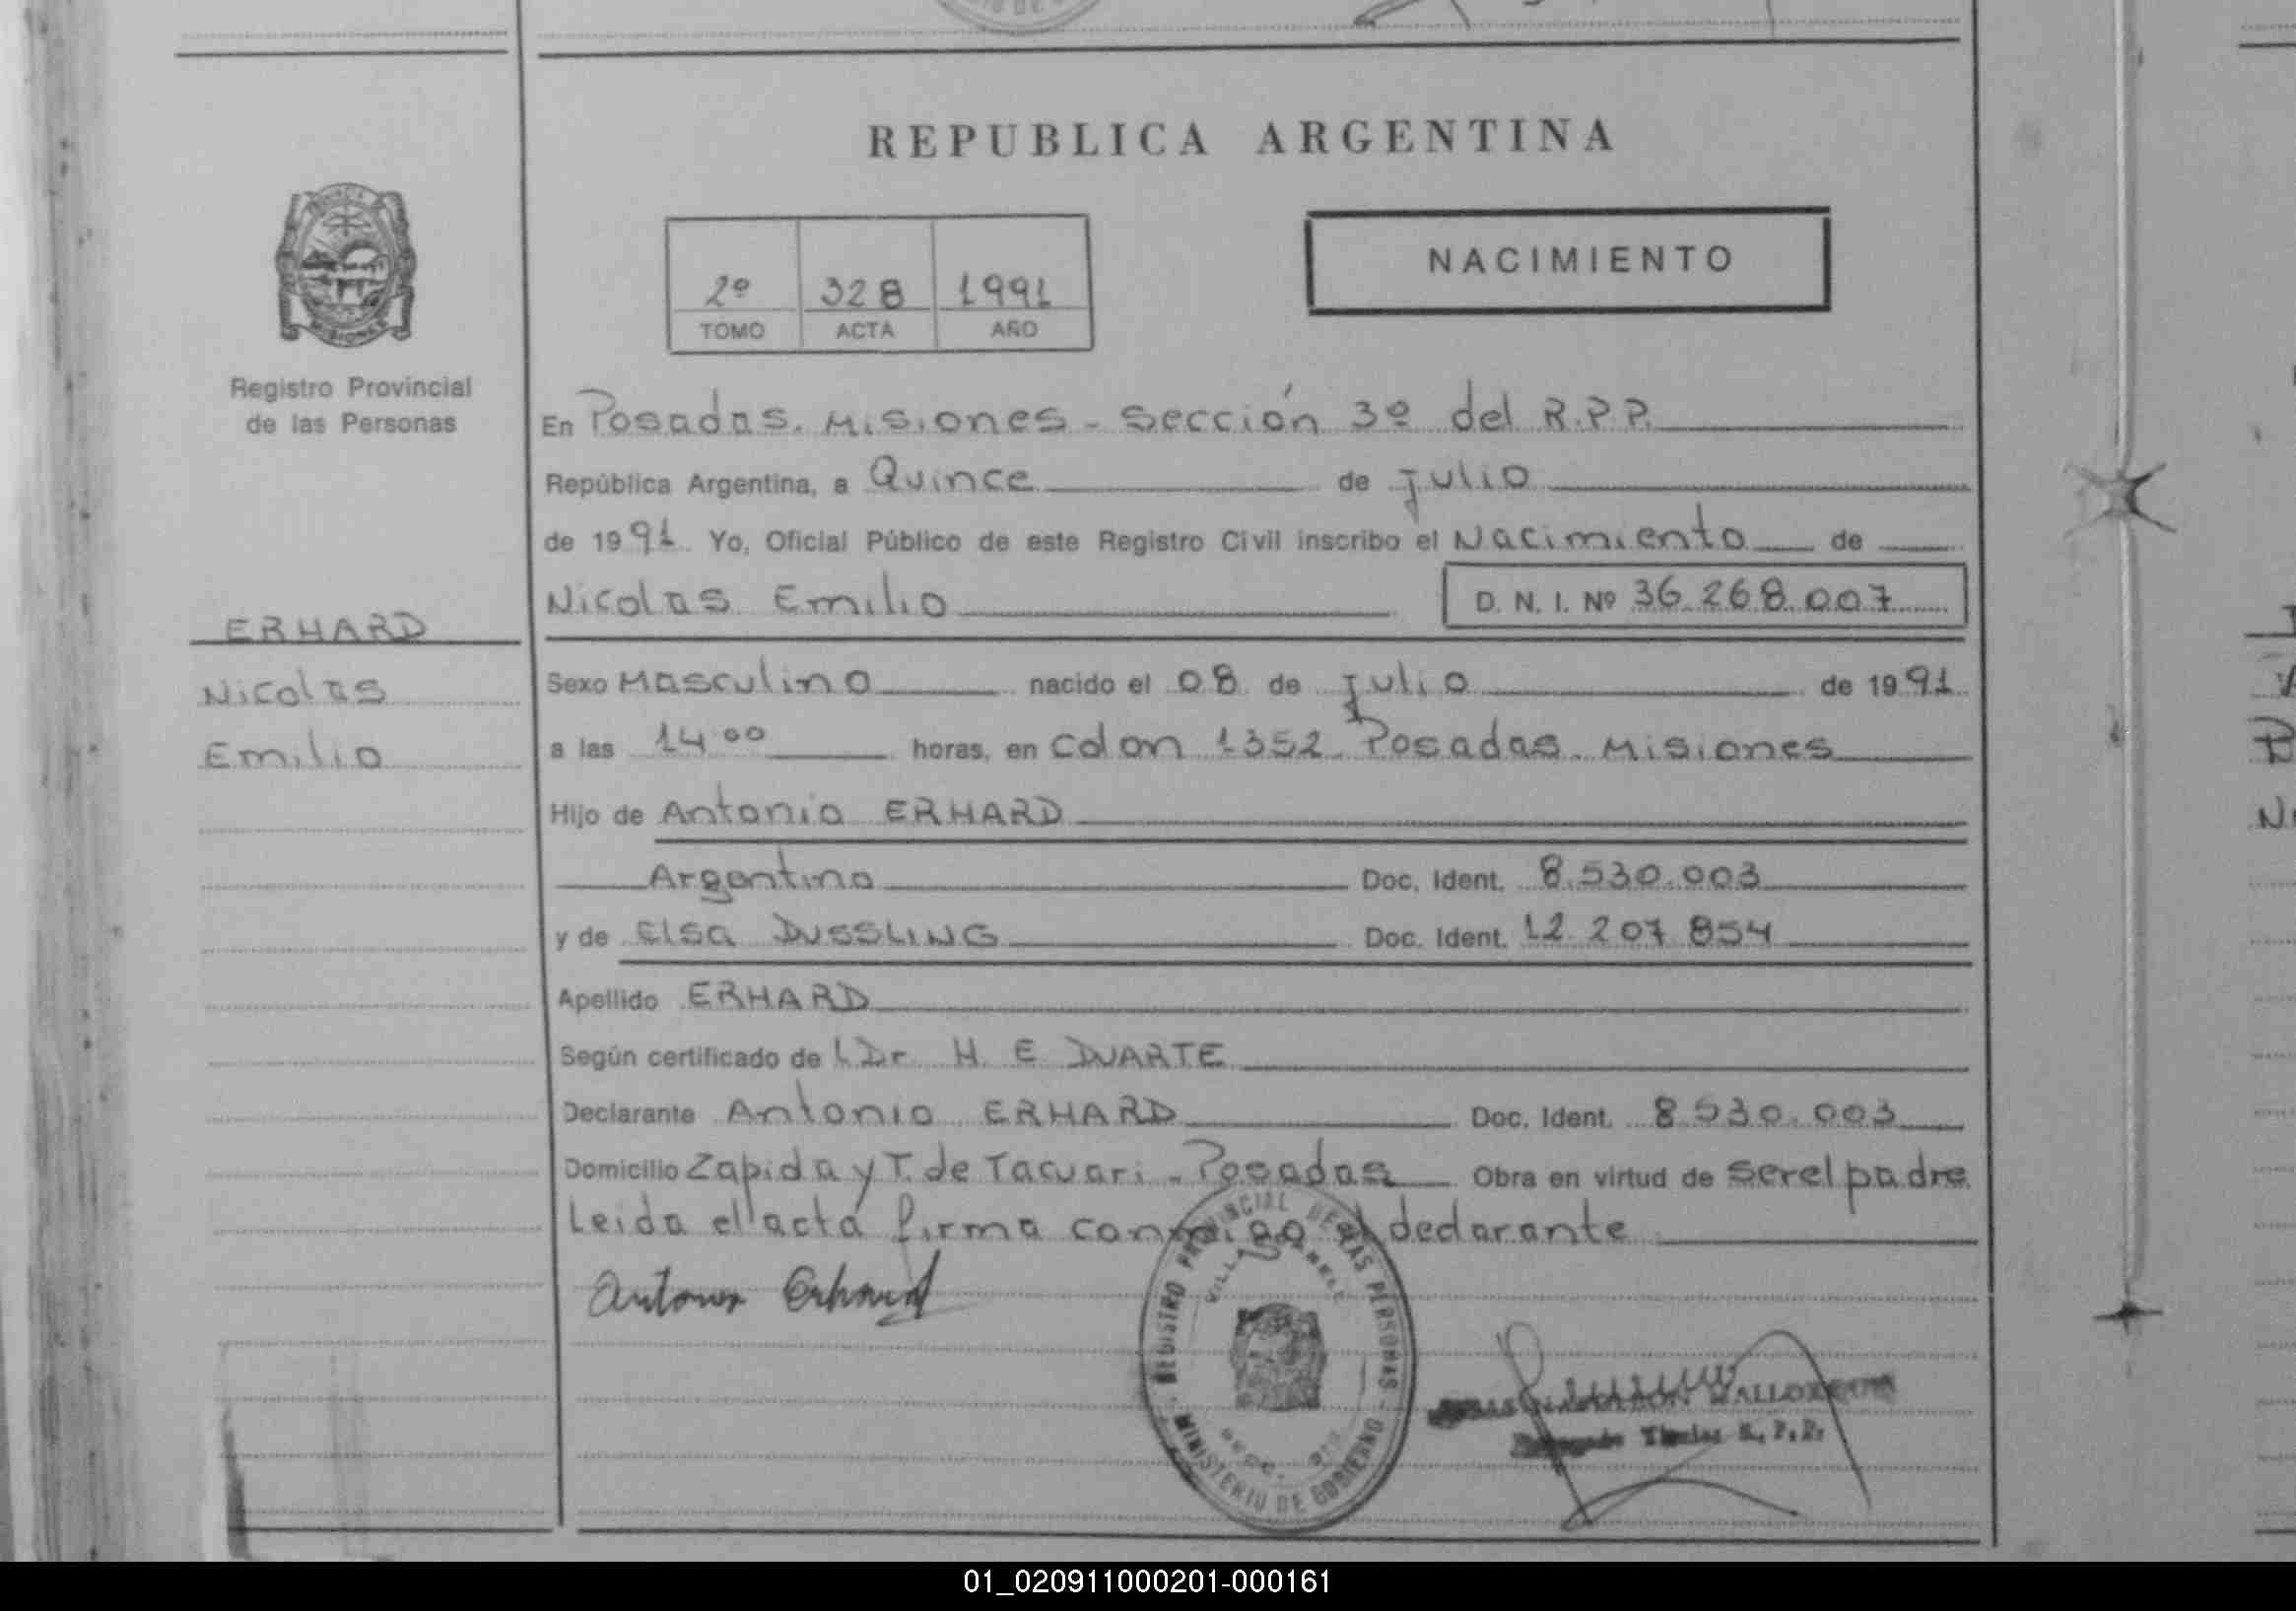 REPUBLICA ARGENTINA
NACIMIENTO
2º 328 1991
TOMO ACTA AÑO
Registro Provincial
de las Personas
En Posadas. Misiones - Sección 3º del R.P.P.
República Argentina, a Quince de julio
de 1991 Yo, Oficial Público de este Registro Civil inscribo el Nacimiento de
Nicolas Emilio D. N. I. Nº 36.268.007
ERHARD
Nicolas
Emilio
Sexo Masculino nacido el 08 de julio de 1991
a las 14 00 horas, en Colon 1352 Posadas. Misiones
Hijo de Antonio ERHARD
Argentino Doc. Ident. 8.530.003
y de Elsa DUSSLING Doc. Ident. 12.207.854
Apellido ERHARD
Según certificado de Dr. H. E. DUARTE
Declarante Antonio ERHARD Doc. Ident. 8.530.003
Domicilio Zapida y T. de Tacuari - Posadas Obra en virtud de ser el padre
Leida el acta firma conmigo el declarante
Antonio Erhard
REGISTRO PROVINCIAL DE LAS PERSONAS
MINISTERIO DE GOBIERNO
Titular R. P. P.
01_020911000201-000161